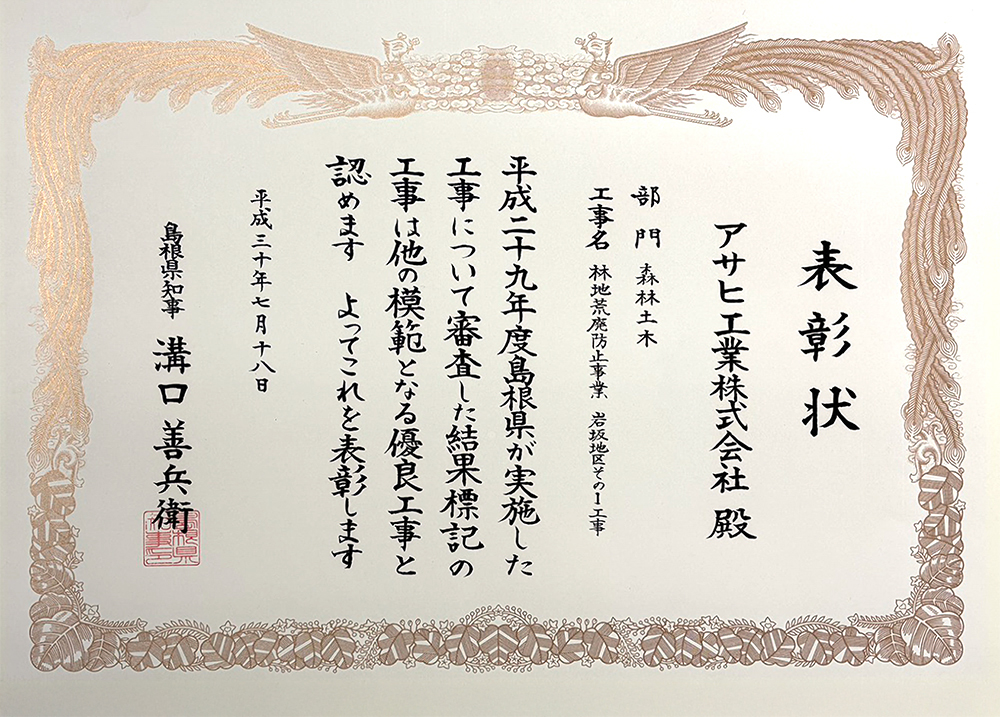 表彰状
アサヒ工業株式会社 殿
部門 森林土木
工事名 林地荒廃防止事業 岩坂地区その1工事
平成二十九年度島根県が実施した
工事について審査した結果標記の
工事は他の模範となる優良工事と
認めます よってこれを表彰します
平成三十年七月十八日
島根県知事 溝口善兵衛